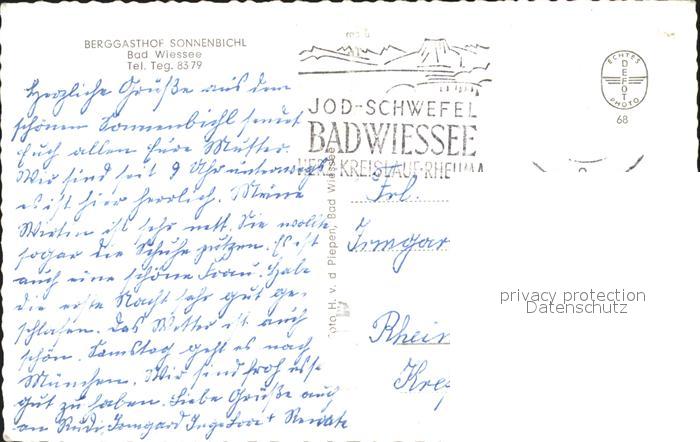 BERGGASTHOF SONNENBICHL
Bad Wiessee
Tel. Teg. 8379
Herzliche Grüße aus dem
schönen Sonnenbichl sendet
Euch allen Eure Mutter.
Wir sind seit 9 Uhr unterwegs
es ist hier herrlich. Meine
Wirtin ist sehr nett. Sie wollte
sogar die Schuhe putzen. Es ist
auch eine schöne Frau. Habe
die erste Nacht sehr gut ge-
schlafen. Das Wetter ist auch
schön. Samstag geht es nach
München. Wir sind froh
gut zu haben. Liebe Grüße auch
an Rudi, Irmgard Ingelore + Renate
JOD-SCHWEFEL
BAD WIESSEE
HERZ-KREISLAUF-RHEUMA
ECHTES
DEFOT
PHOTO
68
Foto H. v. d Piepen, Bad Wiessee
Frl.
Irmgar
Rhein
Kre
privacy protection
Datenschutz